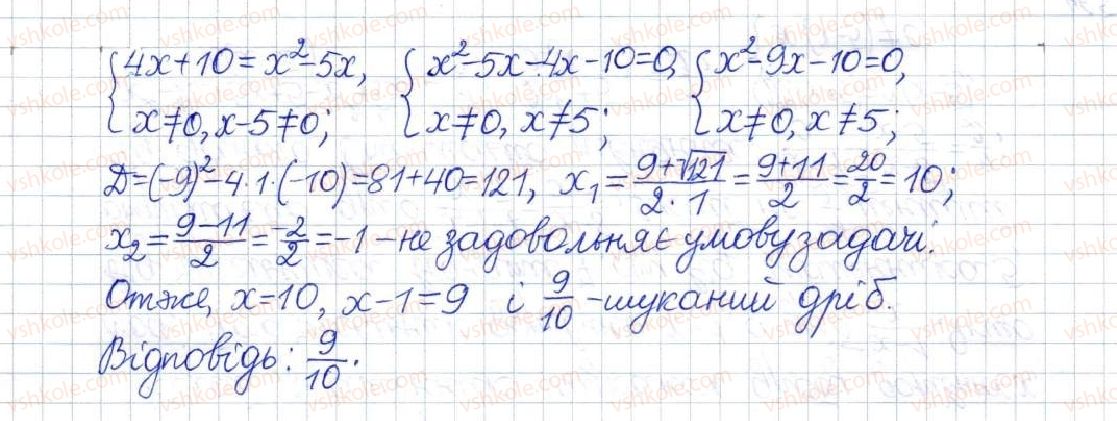 {4x+10=x²-5x, {x²-5x-4x-10=0, {x²-9x-10=0,
x≠0, x-5≠0; x≠0, x≠5; x≠0, x≠5;
Д=(-9)²-4·1·(-10)=81+40=121, x₁=(9+√121)/(2·1)=(9+11)/2=20/2=10;
x₂=(9-11)/2=-2/2=-1-не задовольняє умову задачі.
Отже, x=10, x-1=9 і 9/10 -шуканий дріб.
Відповідь: 9/10.
vshkole.com